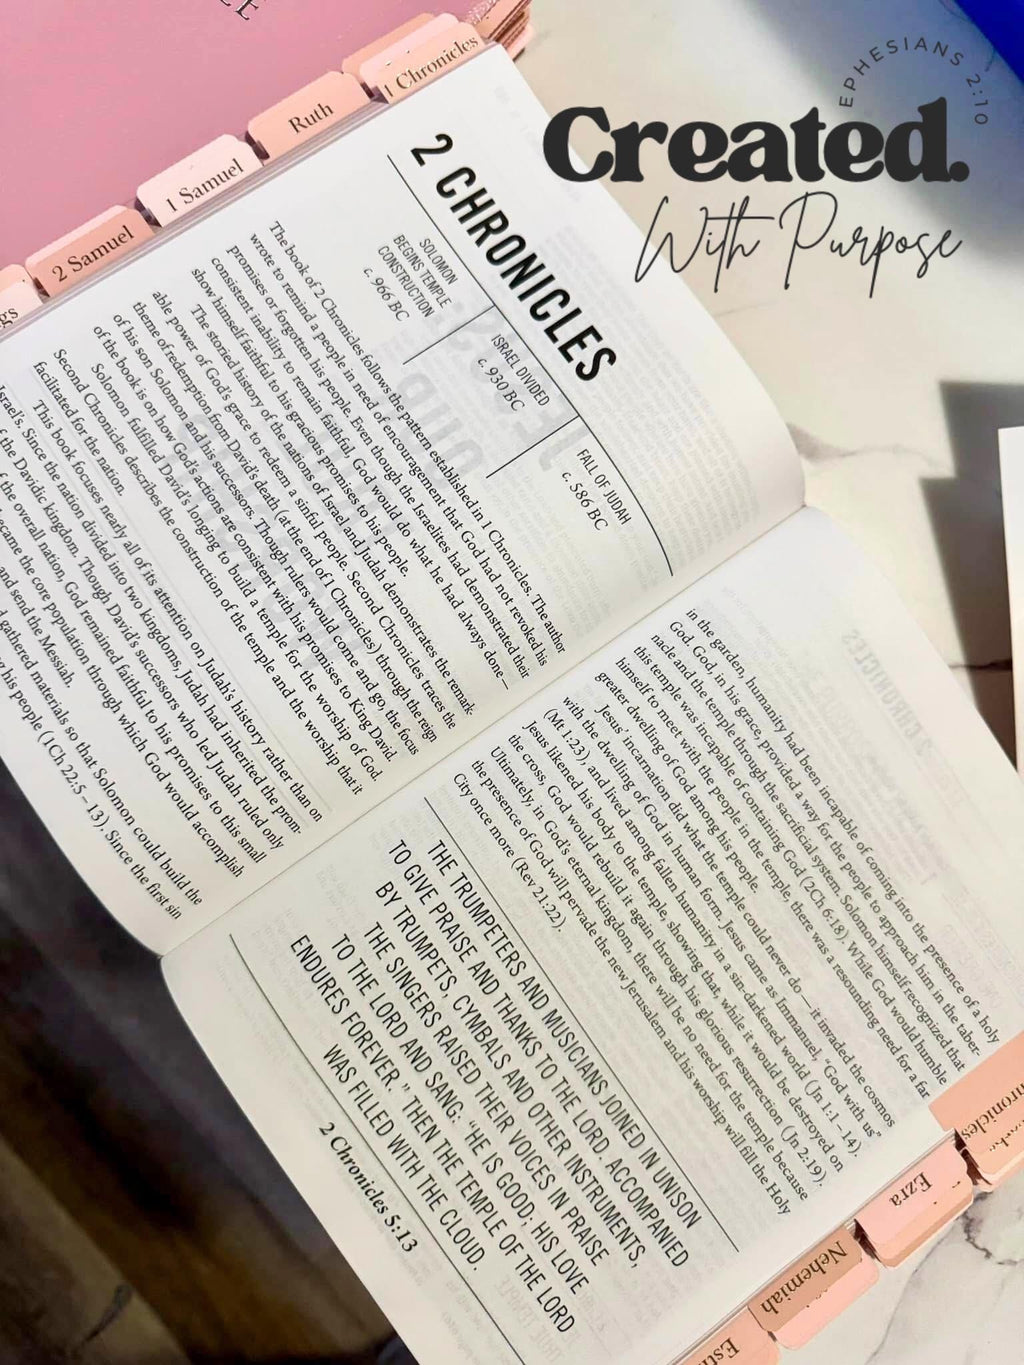 EPHESIANS 2:10
Created.
With Purpose
1 Chronicles
Ruth
1 Samuel
2 Samuel
gs
2 CHRONICLES
SOLOMON
BEGINS TEMPLE
CONSTRUCTION
c. 966 BC
ISRAEL DIVIDED
c. 930 BC
FALL OF JUDAH
c. 586 BC
The book of 2 Chronicles follows the pattern established in 1 Chronicles. The author
wrote to remind a people in need of encouragement that God had not revoked his
promises or forgotten his people. Even though the Israelites had demonstrated their
consistent inability to remain faithful, God would do what he had always done—
show himself faithful to his gracious promises to his people.
The storied history of the nations of Israel and Judah demonstrates the remark-
able power of God's grace to redeem a sinful people. Second Chronicles traces the
theme of redemption from David's death (at the end of 1 Chronicles) through the reign
of his son Solomon and his successors. Though rulers would come and go, the focus
of the book is on how God's actions are consistent with his promises to King David.
Solomon fulfilled David's longing to build a temple for the worship of God.
Second Chronicles describes the construction of the temple and the worship that it
facilitated for the nation.
This book focuses nearly all of its attention on Judah's history rather than on
Israel's. Since the nation divided into two kingdoms, Judah had inherited the prom-
of the Davidic kingdom. Though David's successors who led Judah ruled only
of the overall nation, God remained faithful to his promises to this small
became the core population through which God would accomplish
and send the Messiah.
gathered materials so that Solomon could build the
his people (1Ch 22:5–13). Since the first sin
in the garden, humanity had been incapable of coming into the presence of a holy
God. God, in his grace, provided a way for the people to approach him in the taber-
nacle and the temple through the sacrificial system. Solomon himself recognized that
this temple was incapable of containing God (2Ch 6:18). While God would humble
himself to meet with the people in the temple, there was a resounding need for a far
greater dwelling of God among his people.
Jesus' incarnation did what the temple could never do—it invaded the cosmos
with the dwelling of God in human form. Jesus came as Immanuel, "God with us"
(Mt 1:23), and lived among fallen humanity in a sin-darkened world (Jn 1:1–14).
Jesus likened his body to the temple, showing that, while it would be destroyed on
the cross, God would rebuild it again through his glorious resurrection (Jn 2:19).
Ultimately, in God's eternal kingdom, there will be no need for the temple because
the presence of God will pervade the new Jerusalem and his worship will fill the Holy
City once more (Rev 21:22).
THE TRUMPETERS AND MUSICIANS JOINED IN UNISON
TO GIVE PRAISE AND THANKS TO THE LORD. ACCOMPANIED
BY TRUMPETS, CYMBALS AND OTHER INSTRUMENTS,
THE SINGERS RAISED THEIR VOICES IN PRAISE
TO THE LORD AND SANG: "HE IS GOOD; HIS LOVE
ENDURES FOREVER." THEN THE TEMPLE OF THE LORD
WAS FILLED WITH THE CLOUD.
2 Chronicles 5:13
Ezra
Nehemiah